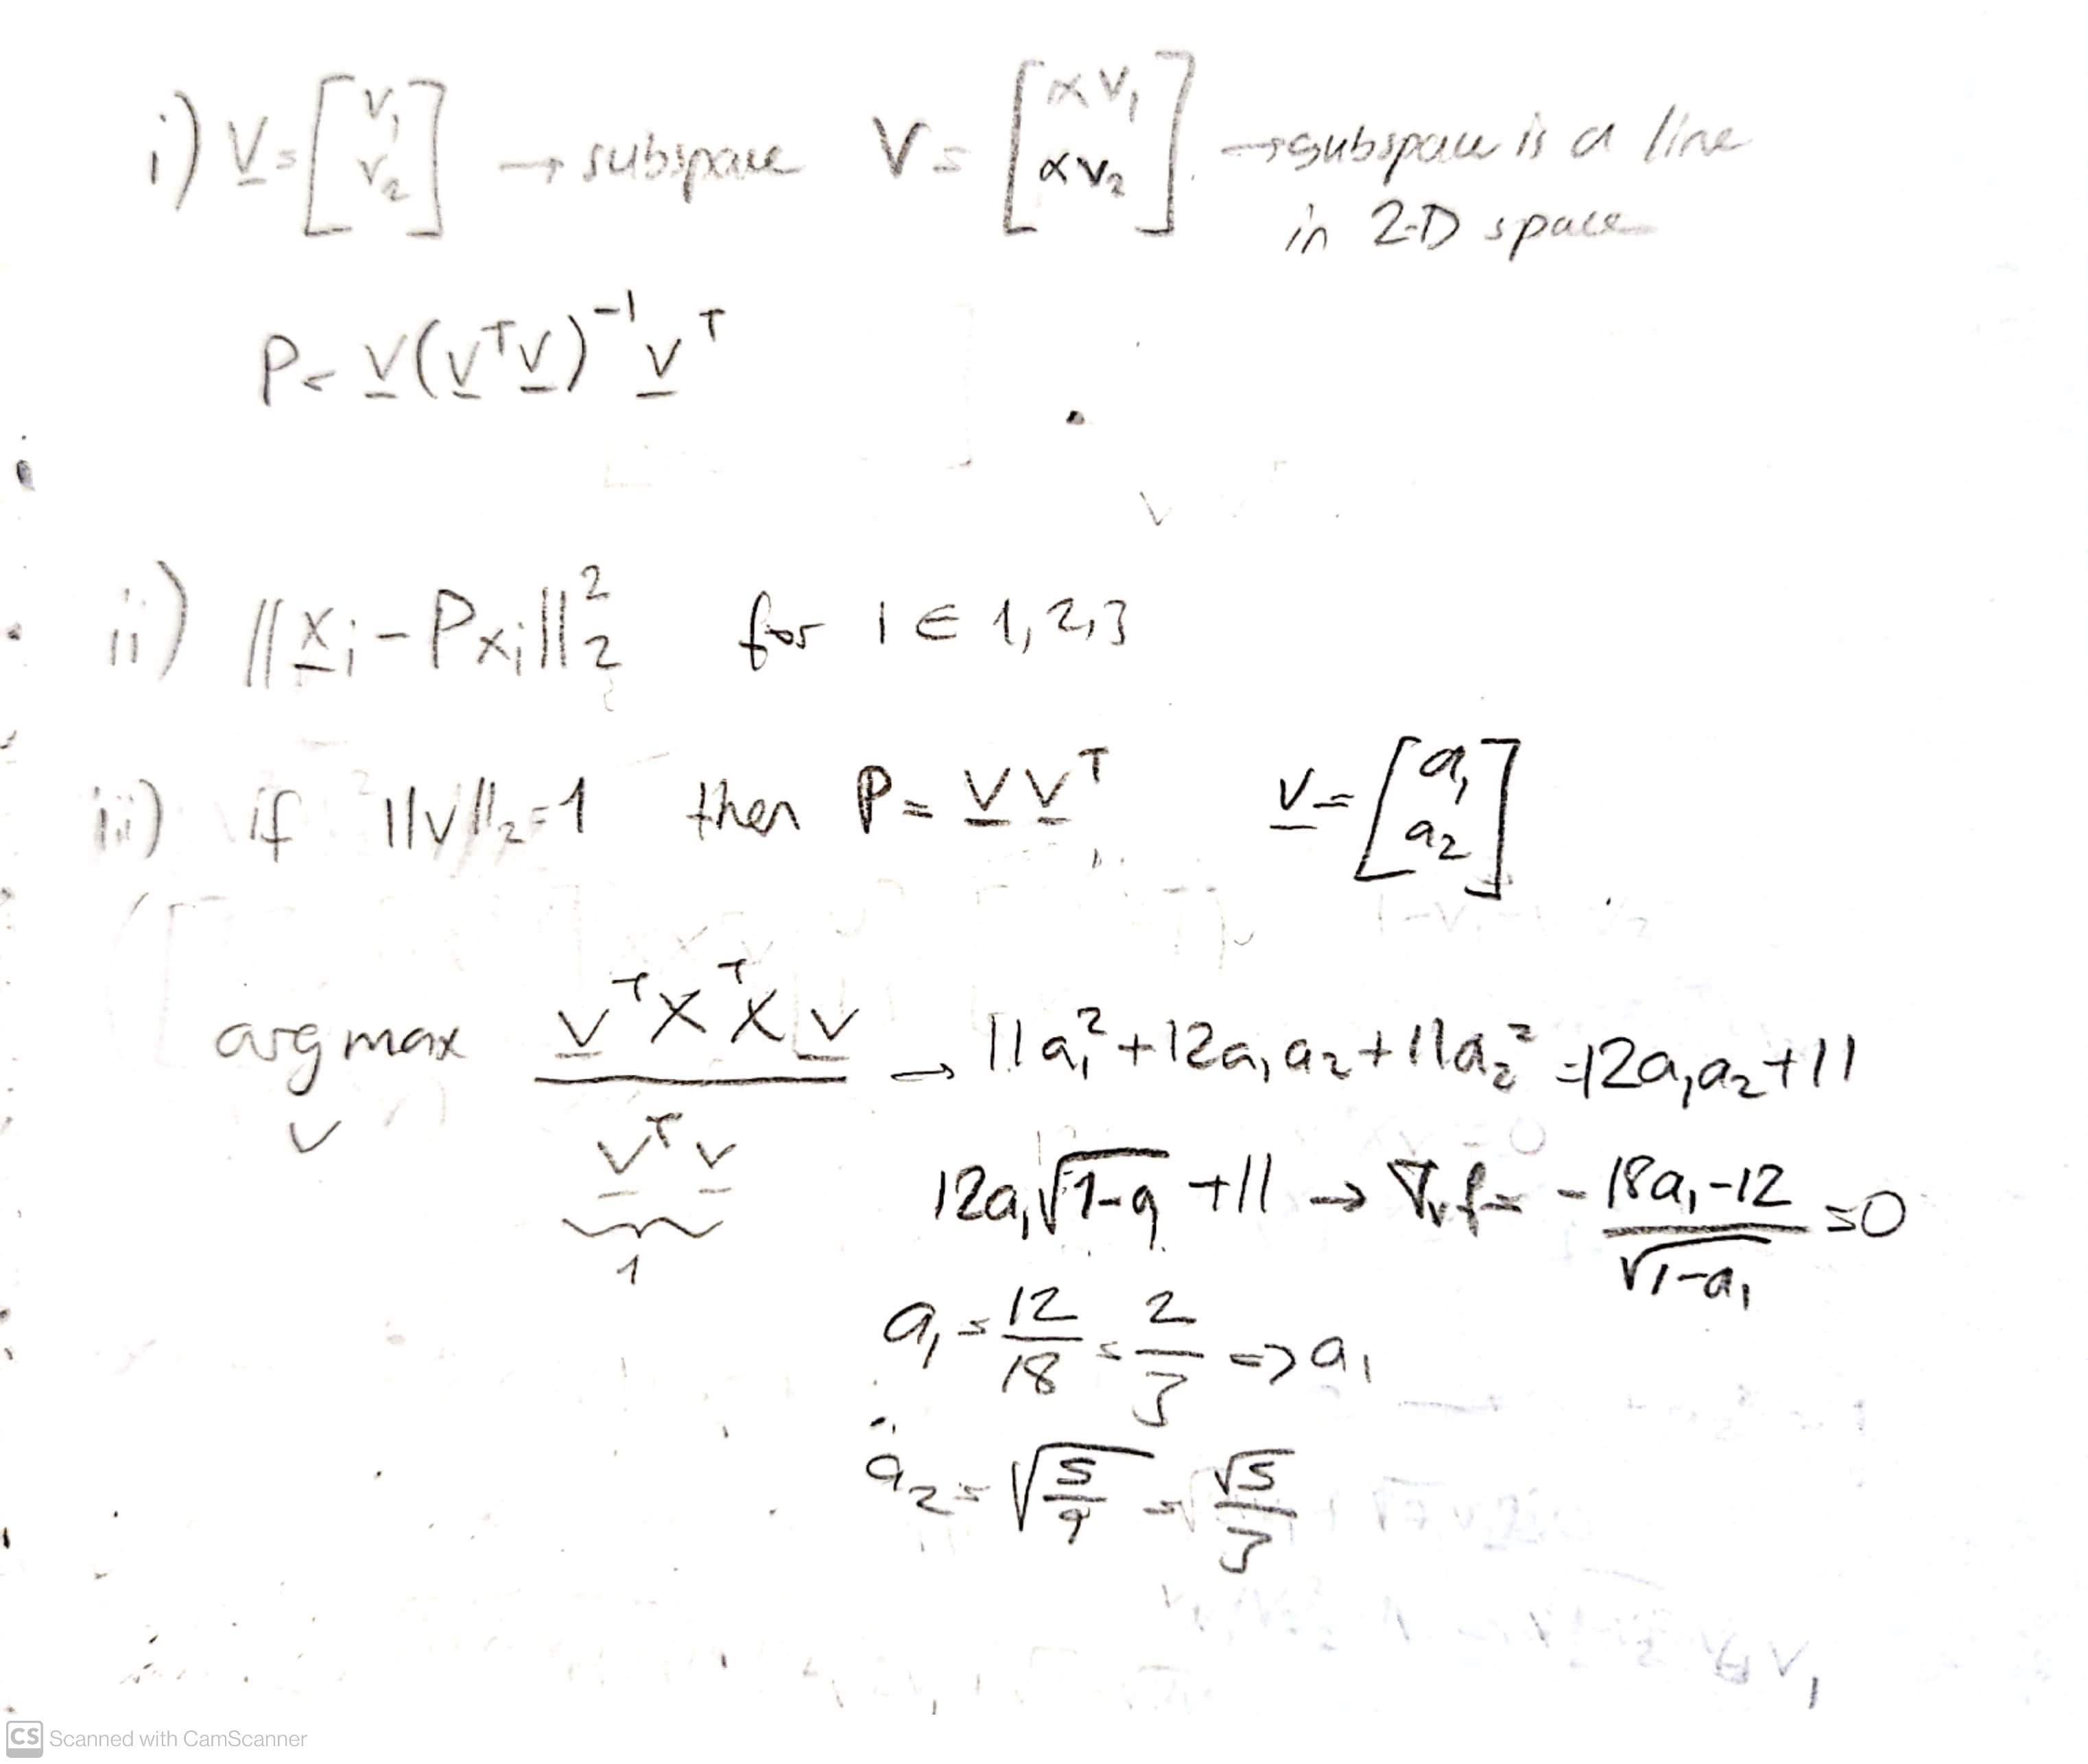 i) v = [v₁ v₂] → subspace V = [αv₁ αv₂] → subspace is a line
in 2-D space
P = v(vᵀv)⁻¹vᵀ
ii) ||xᵢ - Pxᵢ||₂² for i ∈ 1,2,3
iii) if ||v||₂ = 1 then P = vvᵀ v = [a₁ a₂]
argmax v vᵀXᵀXv / vᵀv → 11a₁² + 12a₁a₂ + 11a₂² = 12a₁a₂ + 11
1
12a₁√1-a + 11 → ∇ᵥf = - 18a₁-12 / √1-a₁ = 0
a₁ = 12/18 = 2/3 => a₁
a₂ = √5/9 = √5/3
CS Scanned with CamScanner